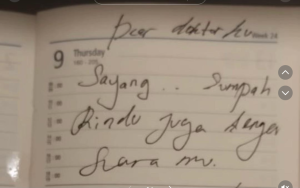 Dear doktor ku
Week 24
9 Thursday
160 - 205
Sayang .. Sumpah
Rindu juga dengan
Suara mu.